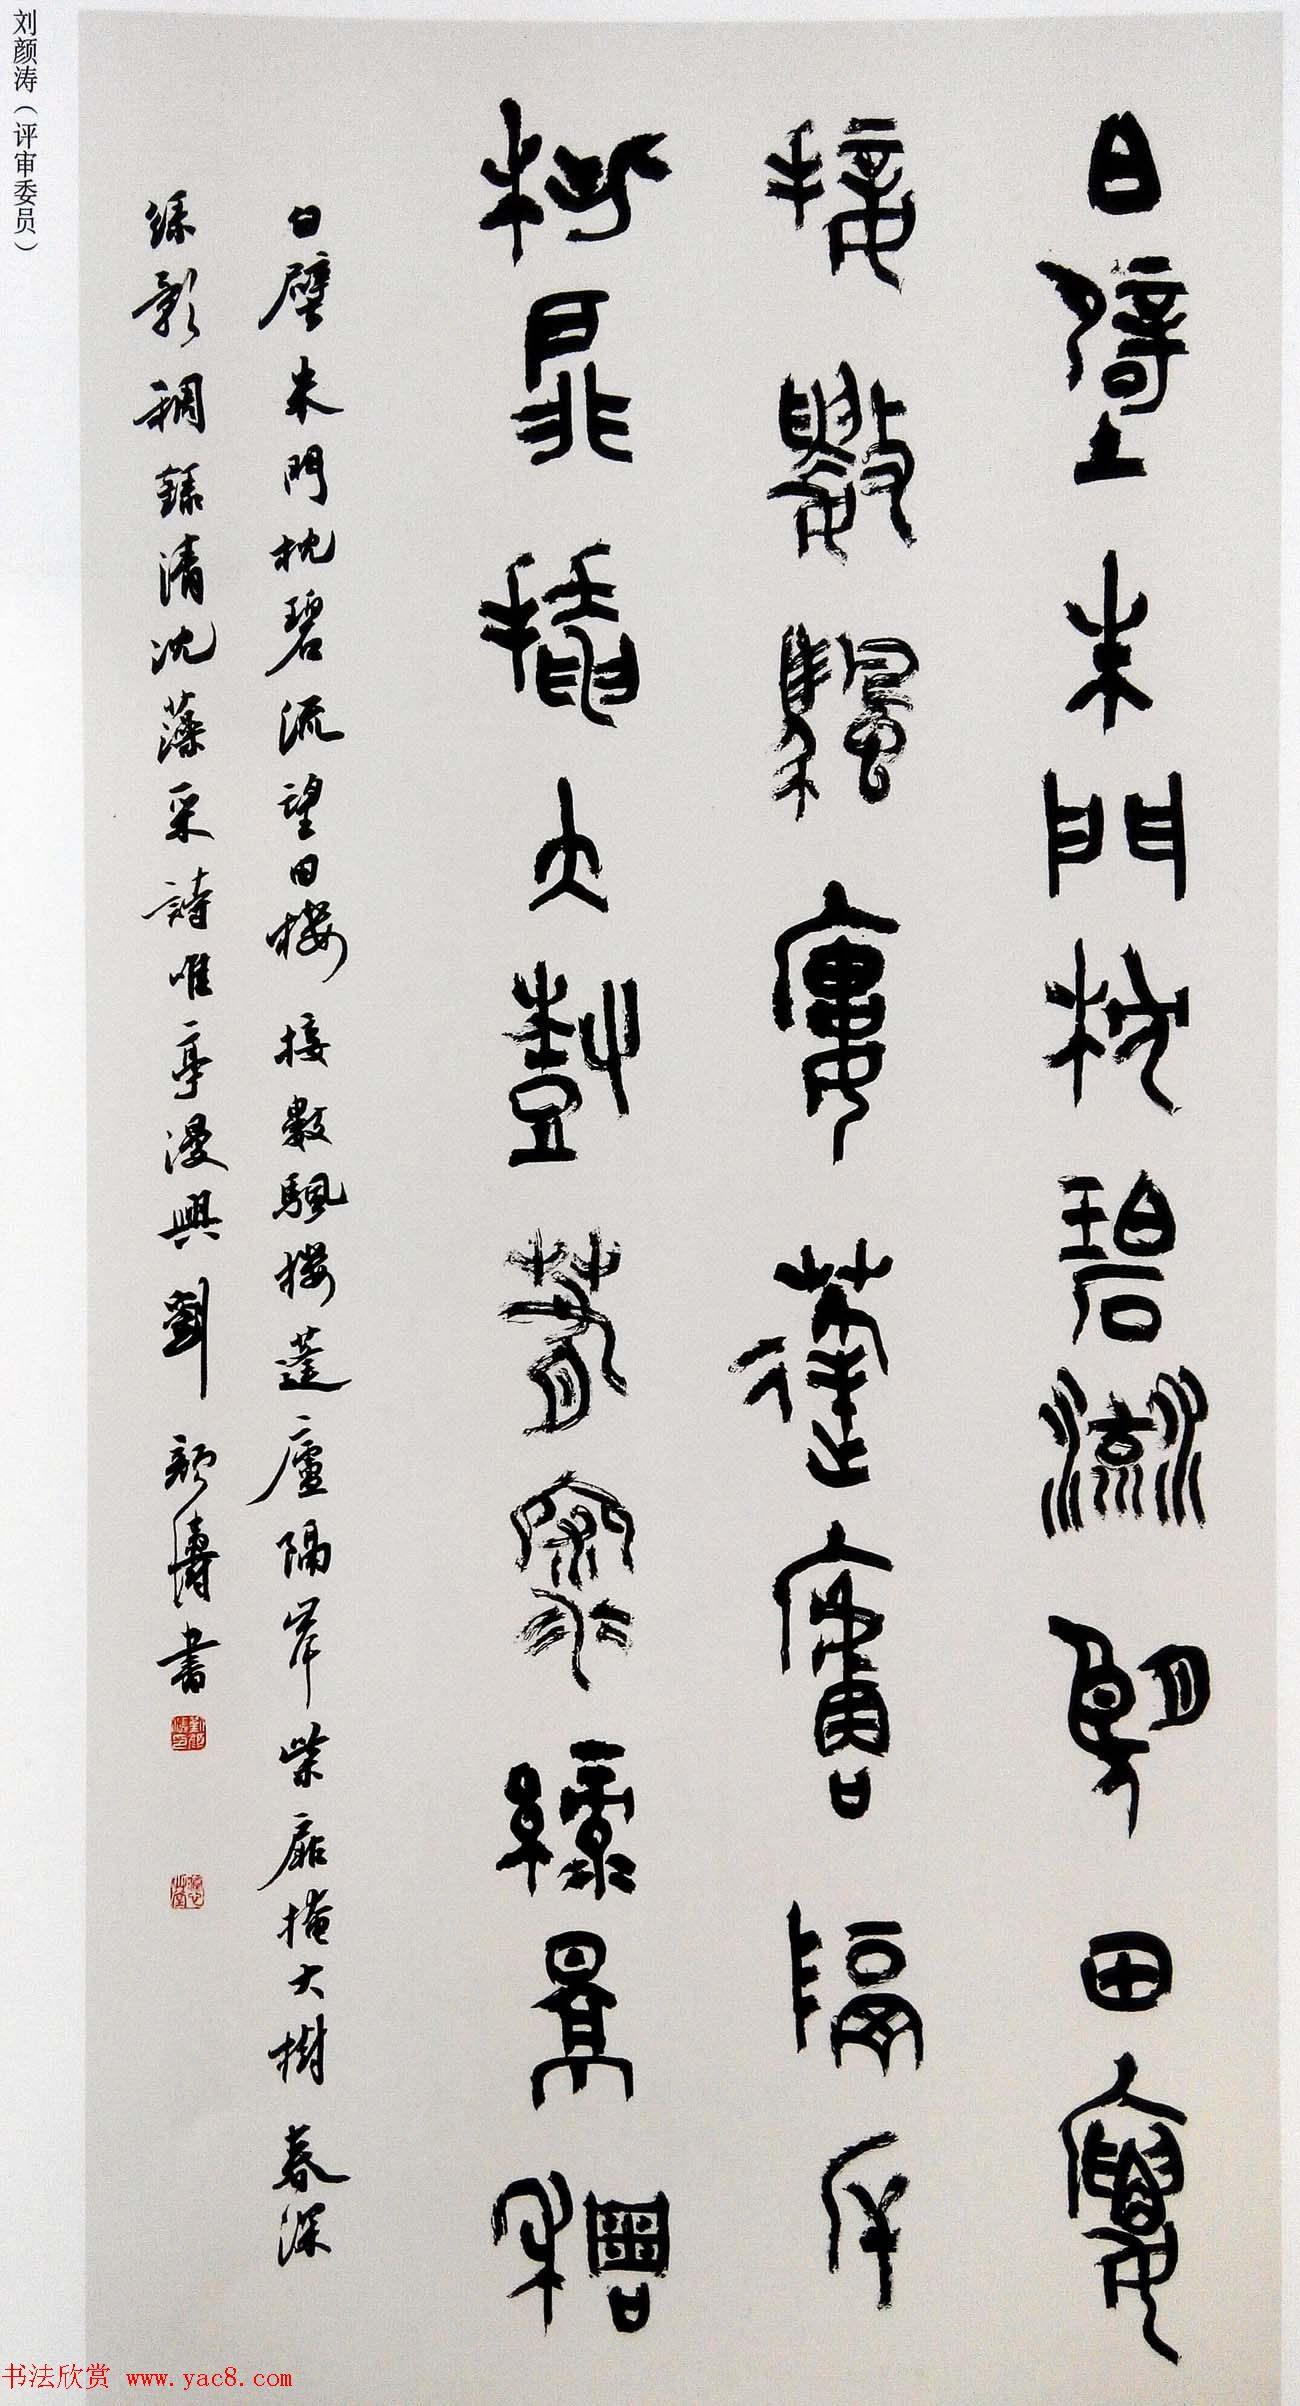 白壁朱門枕碧流望田樓
接數颿樓蓬廬隔岸
柴扉掩大樹春深綠影稠
白壁朱門枕碧流望田樓接數颿樓蓬廬隔岸柴扉掩大樹春深
綠影稠錄清沈藻采詩唯亭漫興劉顏濤書
刘颜涛（评审委员）
书法欣赏 www.yac8.com